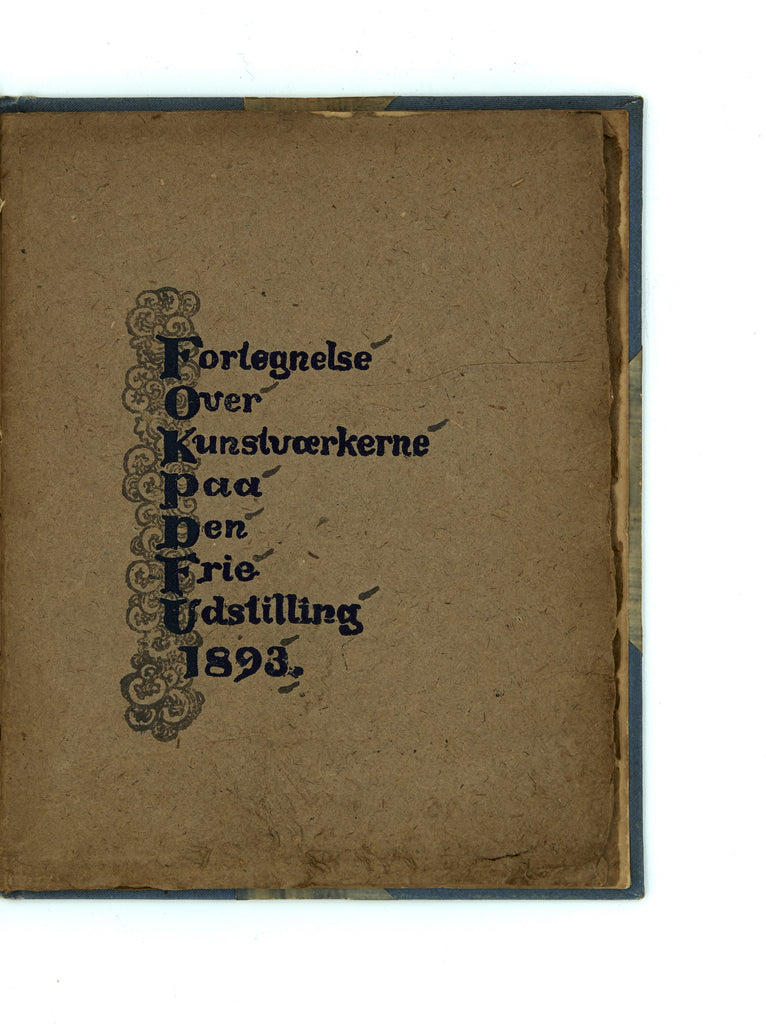 Fortegnelse
Over
Kunstværkerne
Paa
Den
Frie
Udstilling
1893.